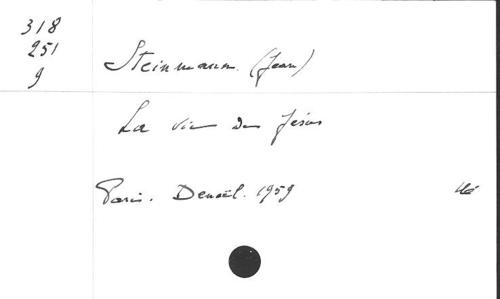 318
251
9
Steinmann (Jean)
La vie de Jésus
Paris. Denoël. 1959